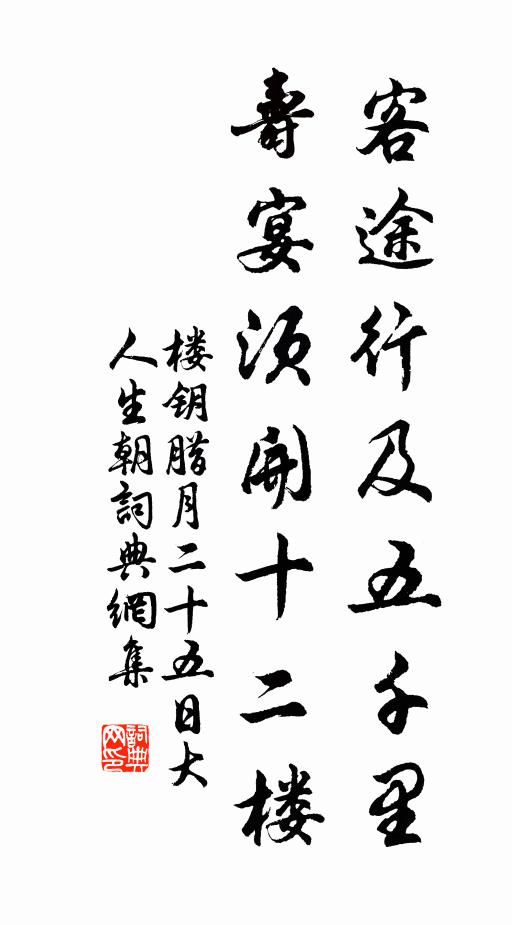 客途行及五千里
壽宴須開十二楼
楼钥腊月二十五日大
人生朝詞典網集
詞典
网印